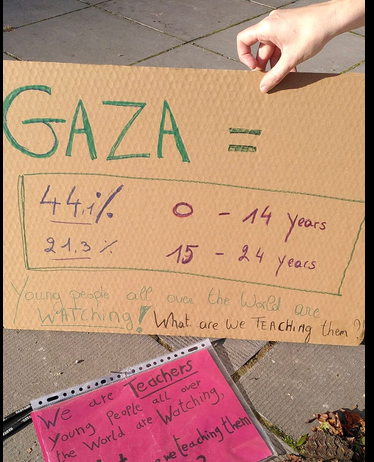 GAZA =
44,1% 0 - 14 years
21.3% 15 - 24 years
Young people all over the World are
WATCHing! What are we TEACHing them?
We are Teachers
Young People all over
the World are Watching,
are we teaching them